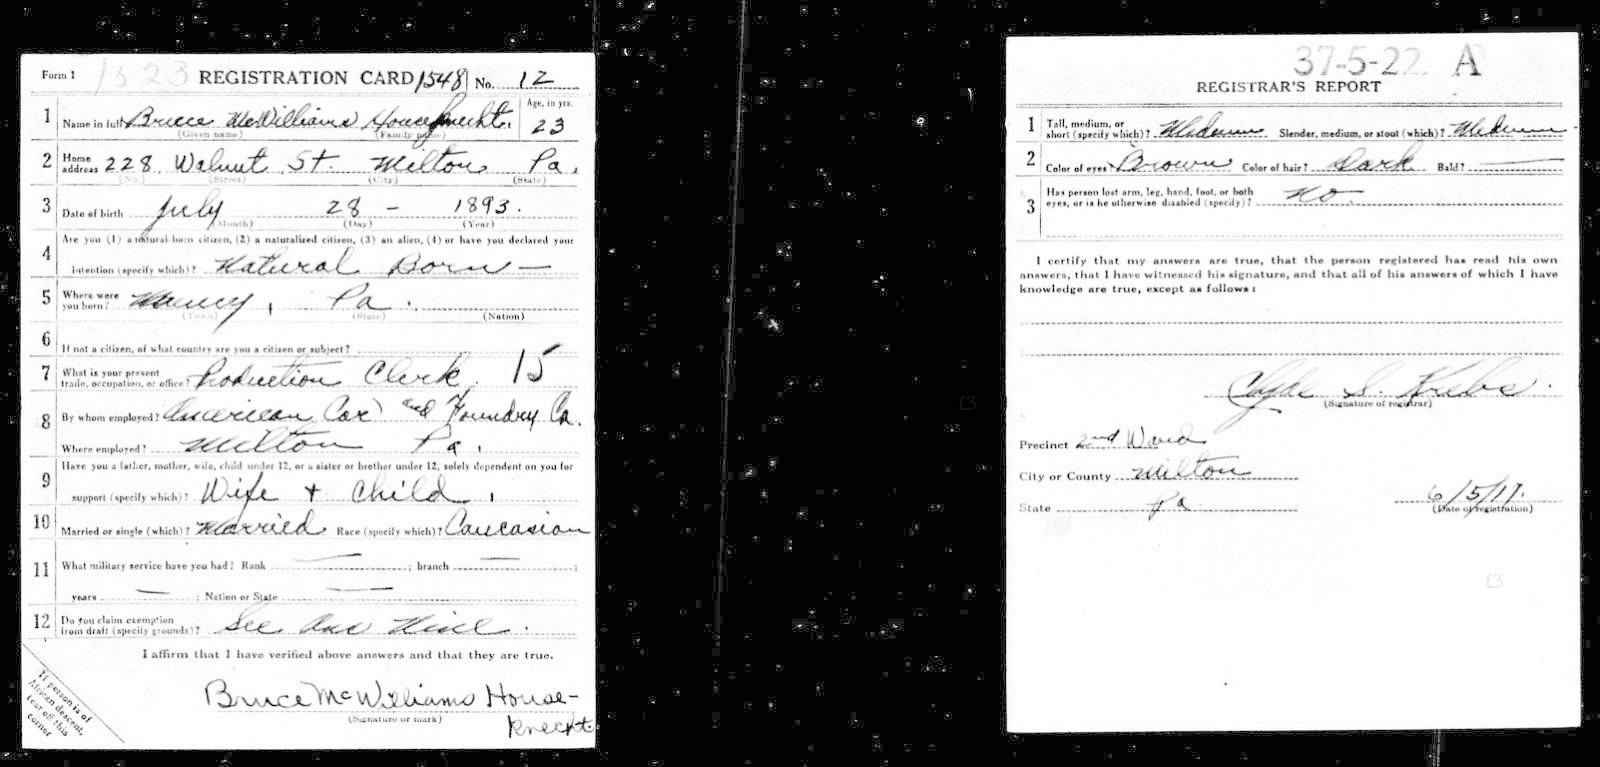 Form 1 1523 REGISTRATION CARD 1548 No. 12
1 Name in full Bruce McWilliams Houseknecht. Age, in yrs. 23
(Given name) (Family name)
2 Home address 228 Walnut St. Milton Pa.
(No.) (Street) (City) (State)
3 Date of birth July 28 - 1893.
(Month) (Day) (Year)
4 Are you (1) a natural-born citizen, (2) a naturalized citizen, (3) an alien, (4) or have you declared your
intention (specify which)? Natural Born —
5 Where were you born? Muncy, Pa.
(Town) (State) (Nation)
6 If not a citizen, of what country are you a citizen or subject?
7 What is your present trade, occupation, or office? Production Clerk. 15
8 By whom employed? American Car and Foundry Co.
Where employed? Milton Pa.
9 Have you a father, mother, wife, child under 12, or a sister or brother under 12, solely dependent on you for
support (specify which)? Wife + Child.
10 Married or single (which)? Married Race (specify which)? Caucasian
11 What military service have you had? Rank — ; branch — ;
years — ; Nation or State —
12 Do you claim exemption from draft (specify grounds)? See
I affirm that I have verified above answers and that they are true.
Bruce McWilliams House-
(Signature or mark)
knecht.
If person is of
African descent,
tear off this
corner
37-5-22. A
REGISTRAR'S REPORT
1 Tall, medium, or short (specify which)? Medium Slender, medium, or stout (which)? Medium
2 Color of eyes? Brown Color of hair? Dark Bald? —
3 Has person lost arm, leg, hand, foot, or both eyes, or is he otherwise disabled (specify)? No.
I certify that my answers are true, that the person registered has read his own
answers, that I have witnessed his signature, and that all of his answers of which I have
knowledge are true, except as follows:
Clyde S. Krebs.
(Signature of registrar)
Precinct 2nd Ward
City or County Milton
State Pa.
6/5/17.
(Date of registration)